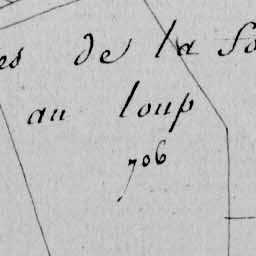 es de la fo
au loup
706